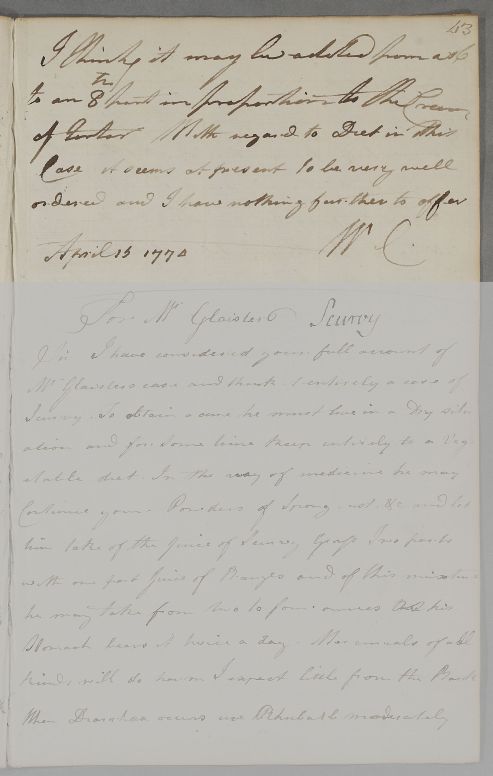 43
I think it may be added from a 6
to an 8th part in proportion to the Cream
of Tartar With regard to Diet in this
Case it seems at present to be very well
ordered and I have nothing further to offer
W C.
April 15 1774
For Mr Glaisters Scurvy
Sir I have considered your full account of
Mr Glaisters case and think it entirely a case of
Scurvy. To obtain a cure he must live in a Dry situ
ation and for some time keep entirely to a Veg
etable diet. In the way of medicine he may
Continue your Powders of &c and let
him take of the Juice of Scurvy Grass Two parts
with one part Juice of Oranges and of this mixture
he may take from two to four ounces as his
Stomach bears it twice a day. Mercurials of all
kinds will do harm I expect little from the Bark
When Diarrhaea occurs use Rhubarb moderately